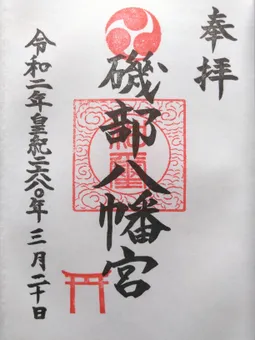 奉拝
磯部八幡宮
令和二年皇紀二六八〇年三月二十日